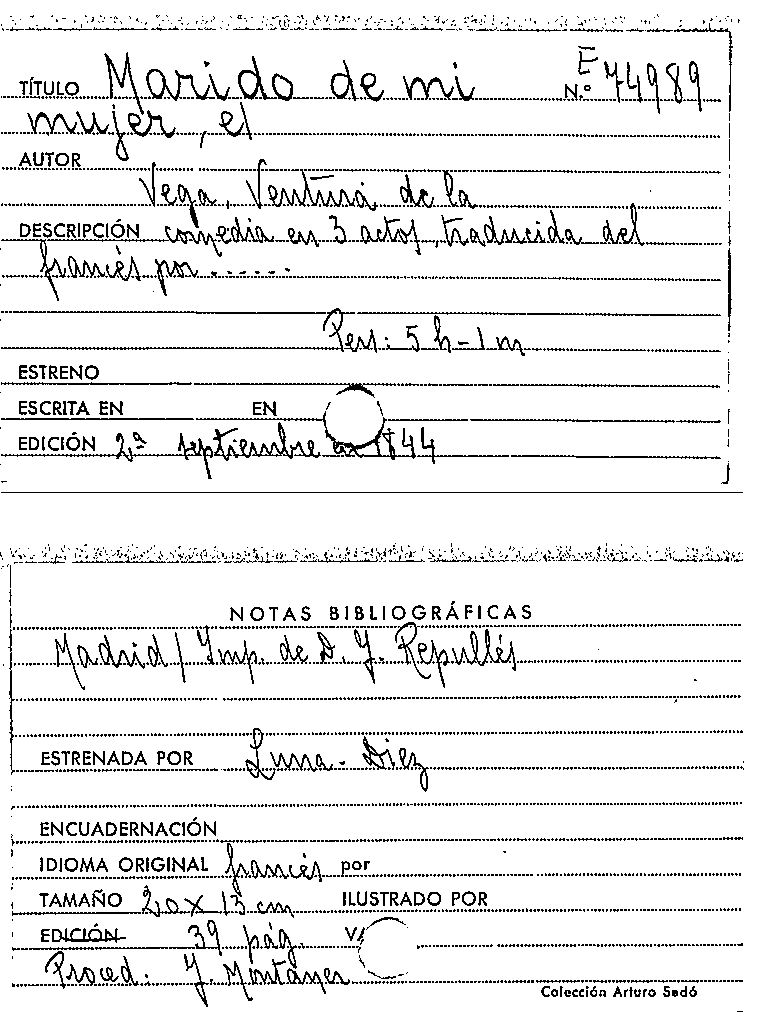 TÍTULO Marido de mi E
N.º 74989
mujer, el
AUTOR
Vega, Ventura de la
DESCRIPCIÓN comedia en 3 actos, traducida del
francés por ......
Pers: 5 h - 1 m
ESTRENO
ESCRITA EN EN
EDICIÓN 2ª septiembre en 1844
NOTAS BIBLIOGRÁFICAS
Madrid / Imp. de D. J. Repullés
ESTRENADA POR Luna - Diez
ENCUADERNACIÓN
IDIOMA ORIGINAL francés por
TAMAÑO 20 x 13 cm ILUSTRADO POR
EDICIÓN 39 pág.
Proced. J. Montaner
Colección Arturo Sedó